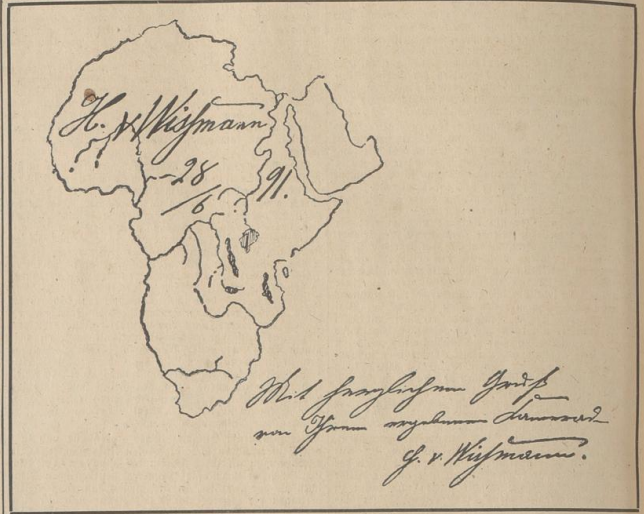 H. v. Wißmann
28/6 91.
Mit herzlichem Gruß
von Ihrem ergebenen Kamerad
H. v. Wißmann.